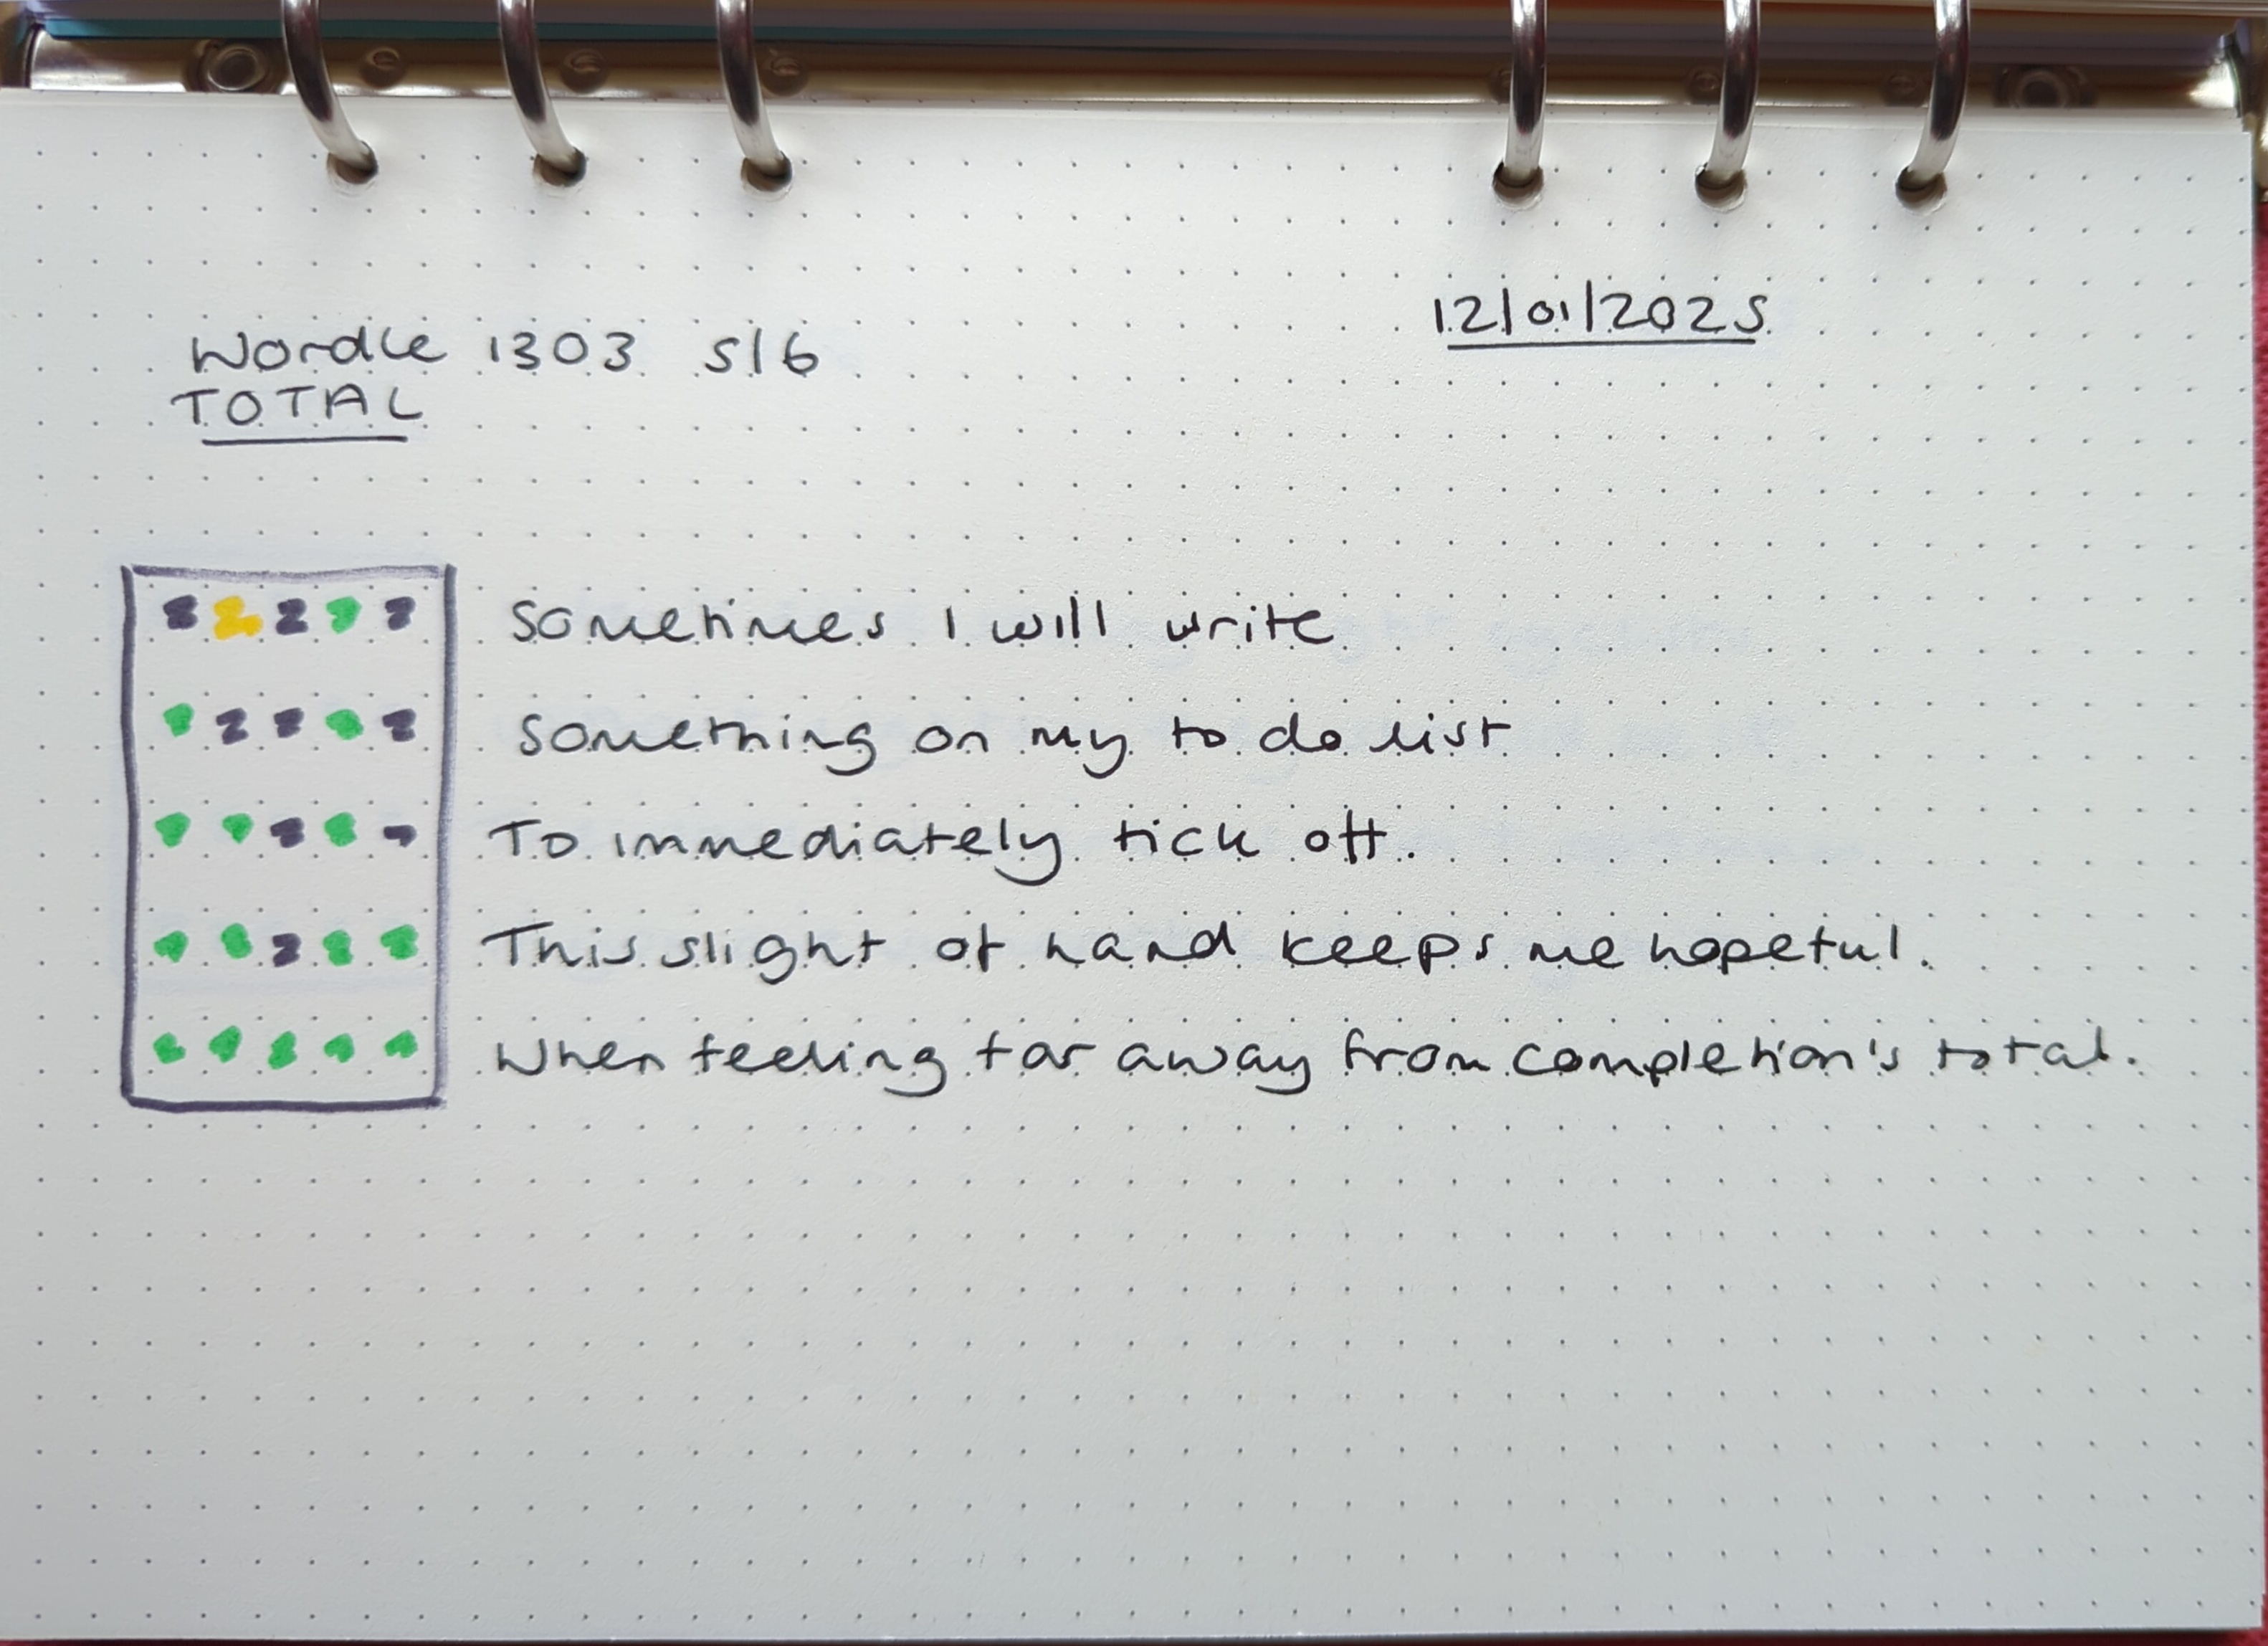 12/01/2025
Wordle 1303 5/6
TOTAL
Sometimes I will write
Something on my to do list
To immediately tick off.
This slight of hand keeps me hopeful.
When feeling far away from completion's total.